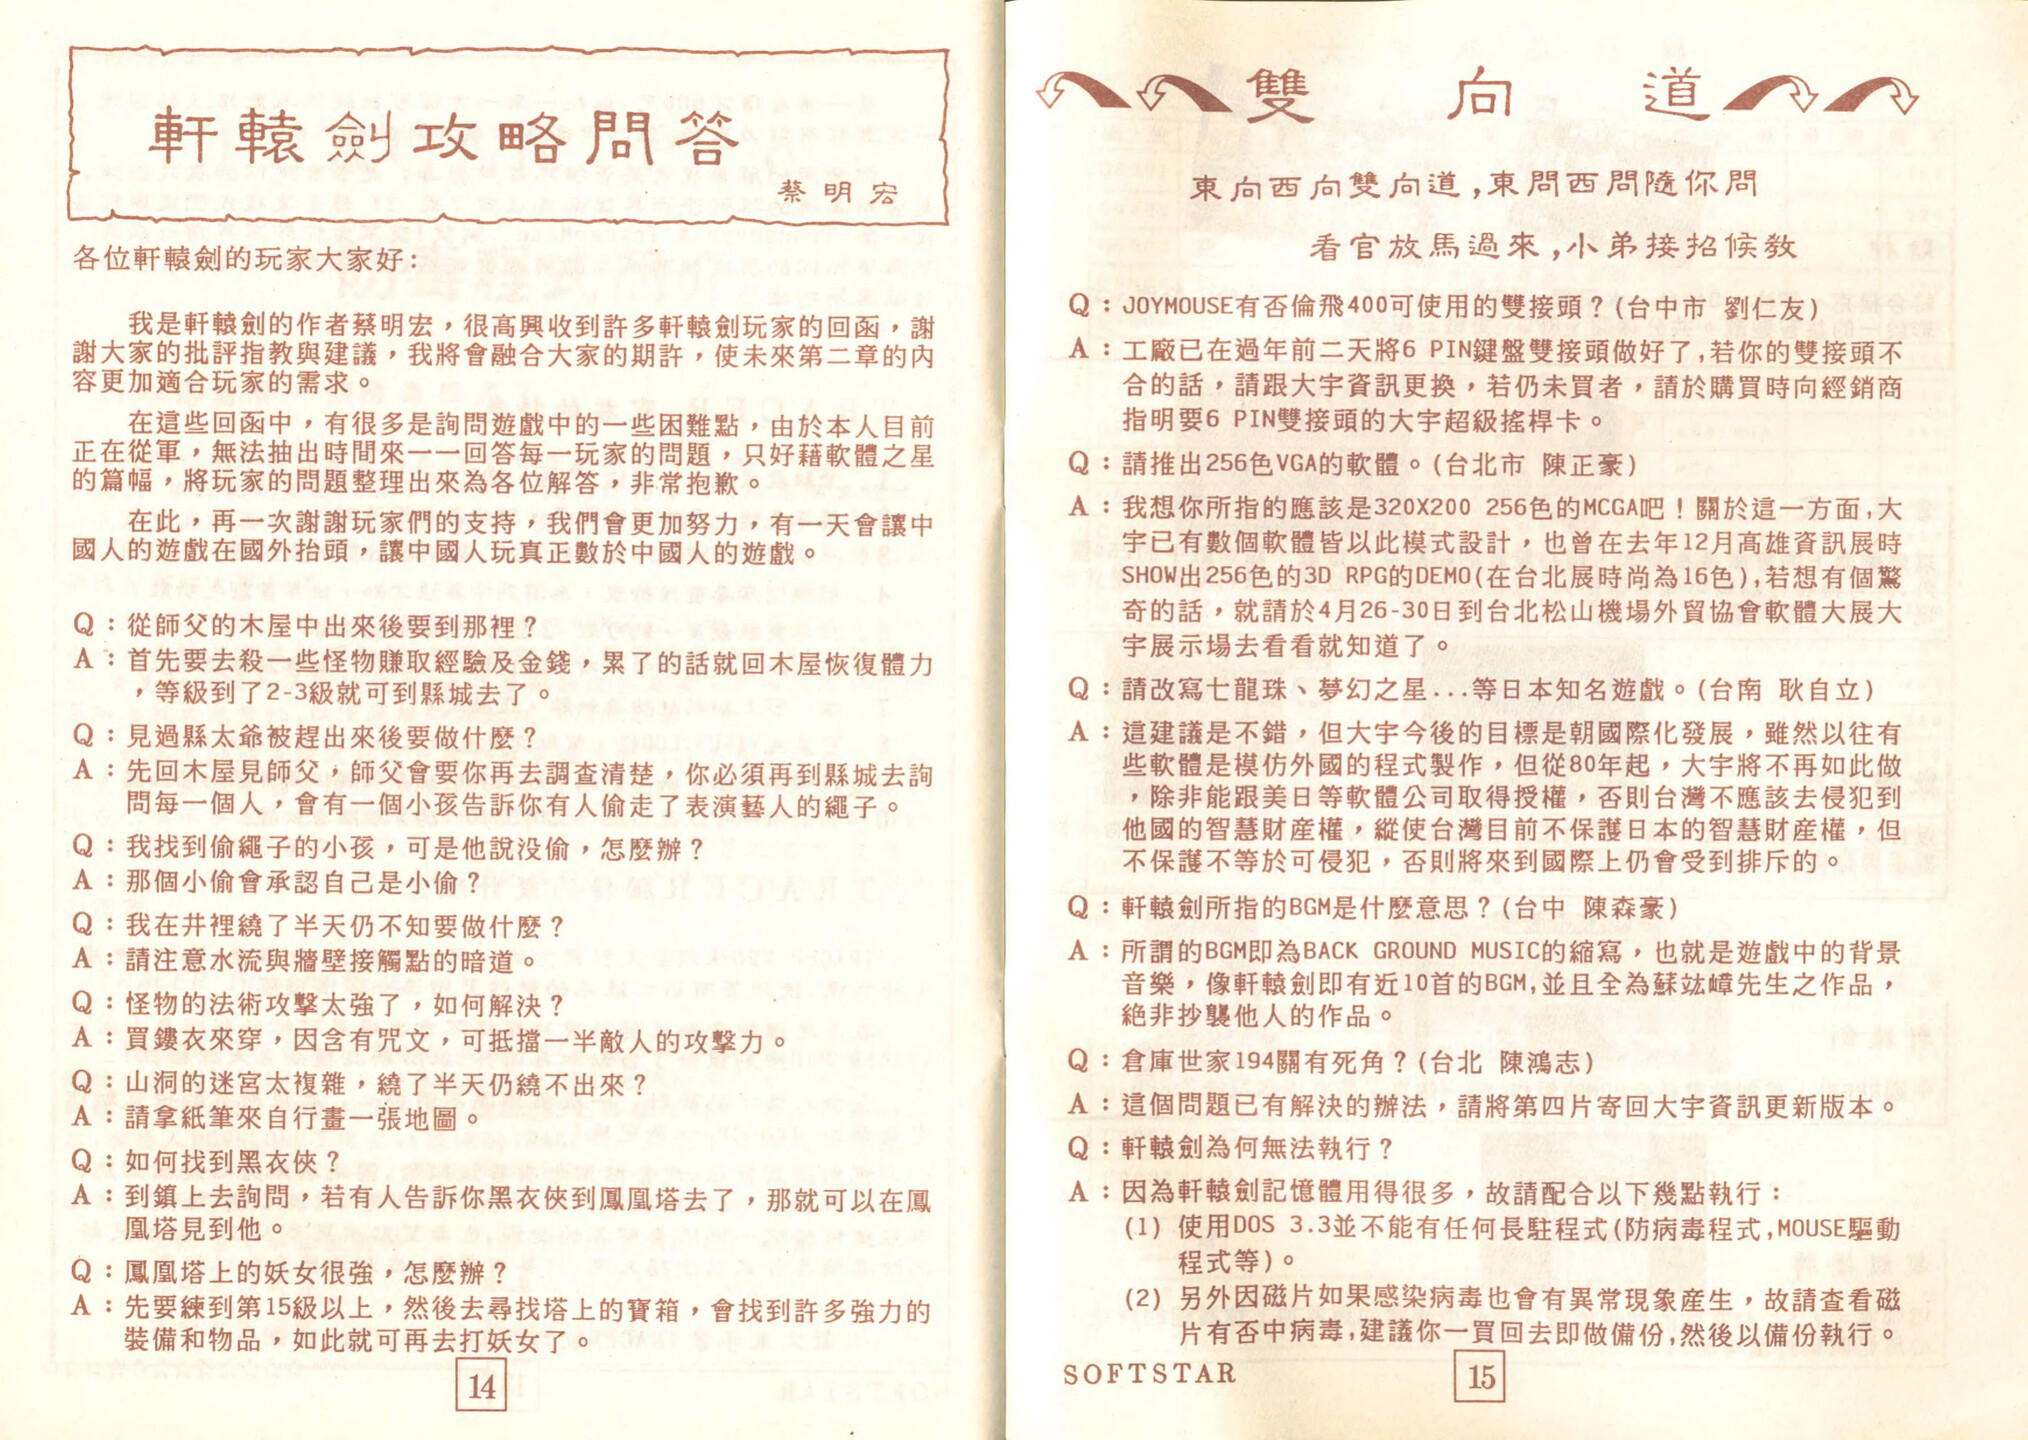 軒轅劍攻略問答
蔡明宏
各位軒轅劍的玩家大家好：
我是軒轅劍的作者蔡明宏，很高興收到許多軒轅劍玩家的回函，謝
謝大家的批評指教與建議，我將會融合大家的期許，使未來第二章的內
容更加適合玩家的需求。
在這些回函中，有很多是詢問遊戲中的一些困難點，由於本人目前
正在從軍，無法抽出時間來一一回答每一玩家的問題，只好藉軟體之星
的篇幅，將玩家的問題整理出來為各位解答，非常抱歉。
在此，再一次謝謝玩家們的支持，我們會更加努力，有一天會讓中
國人的遊戲在國外抬頭，讓中國人玩真正數於中國人的遊戲。
Q：從師父的木屋中出來後要到那裡？
A：首先要去殺一些怪物賺取經驗及金錢，累了的話就回木屋恢復體力
，等級到了2-3級就可到縣城去了。
Q：見過縣太爺被趕出來後要做什麼？
A：先回木屋見師父，師父會要你再去調查清楚，你必須再到縣城去詢
問每一個人，會有一個小孩告訴你有人偷走了表演藝人的繩子。
Q：我找到偷繩子的小孩，可是他說没偷，怎麼辦？
A：那個小偷會承認自己是小偷？
Q：我在井裡繞了半天仍不知要做什麼？
A：請注意水流與牆壁接觸點的暗道。
Q：怪物的法術攻擊太強了，如何解決？
A：買鏤衣來穿，因含有咒文，可抵擋一半敵人的攻擊力。
Q：山洞的迷宮太複雜，繞了半天仍繞不出來？
A：請拿紙筆來自行畫一張地圖。
Q：如何找到黑衣俠？
A：到鎮上去詢問，若有人告訴你黑衣俠到鳳凰塔去了，那就可以在鳳
凰塔見到他。
Q：鳳凰塔上的妖女很強，怎麼辦？
A：先要練到第15級以上，然後去尋找塔上的寶箱，會找到許多強力的
裝備和物品，如此就可再去打妖女了。
14
雙向道
東向西向雙向道，東問西問隨你問
看官放馬過來，小弟接招候教
Q：JOYMOUSE有否倫飛400可使用的雙接頭？(台中市 劉仁友)
A：工廠已在過年前二天將6 PIN鍵盤雙接頭做好了，若你的雙接頭不
合的話，請跟大宇資訊更換，若仍未買者，請於購買時向經銷商
指明要6 PIN雙接頭的大宇超級搖桿卡。
Q：請推出256色VGA的軟體。(台北市 陳正豪)
A：我想你所指的應該是320X200 256色的MCGA吧！關於這一方面，大
宇已有數個軟體皆以此模式設計，也曾在去年12月高雄資訊展時
SHOW出256色的3D RPG的DEMO(在台北展時尚為16色)，若想有個驚
奇的話，就請於4月26-30日到台北松山機場外貿協會軟體大展大
宇展示場去看看就知道了。
Q：請改寫七龍珠、夢幻之星...等日本知名遊戲。(台南 耿自立)
A：這建議是不錯，但大宇今後的目標是朝國際化發展，雖然以往有
些軟體是模仿外國的程式製作，但從80年起，大宇將不再如此做
，除非能跟美日等軟體公司取得授權，否則台灣不應該去侵犯到
他國的智慧財産權，縱使台灣目前不保護日本的智慧財産權，但
不保護不等於可侵犯，否則將來到國際上仍會受到排斥的。
Q：軒轅劍所指的BGM是什麼意思？(台中 陳森豪)
A：所謂的BGM即為BACK GROUND MUSIC的縮寫，也就是遊戲中的背景
音樂，像軒轅劍即有近10首的BGM，並且全為蘇竑嶂先生之作品，
絶非抄襲他人的作品。
Q：倉庫世家194關有死角？(台北 陳鴻志)
A：這個問題已有解決的辦法，請將第四片寄回大宇資訊更新版本。
Q：軒轅劍為何無法執行？
A：因為軒轅劍記憶體用得很多，故請配合以下幾點執行：
(1) 使用DOS 3.3並不能有任何長駐程式(防病毒程式，MOUSE驅動
程式等)。
(2) 另外因磁片如果感染病毒也會有異常現象産生，故請查看磁
片有否中病毒，建議你一買回去即做備份，然後以備份執行。
SOFTSTAR
15